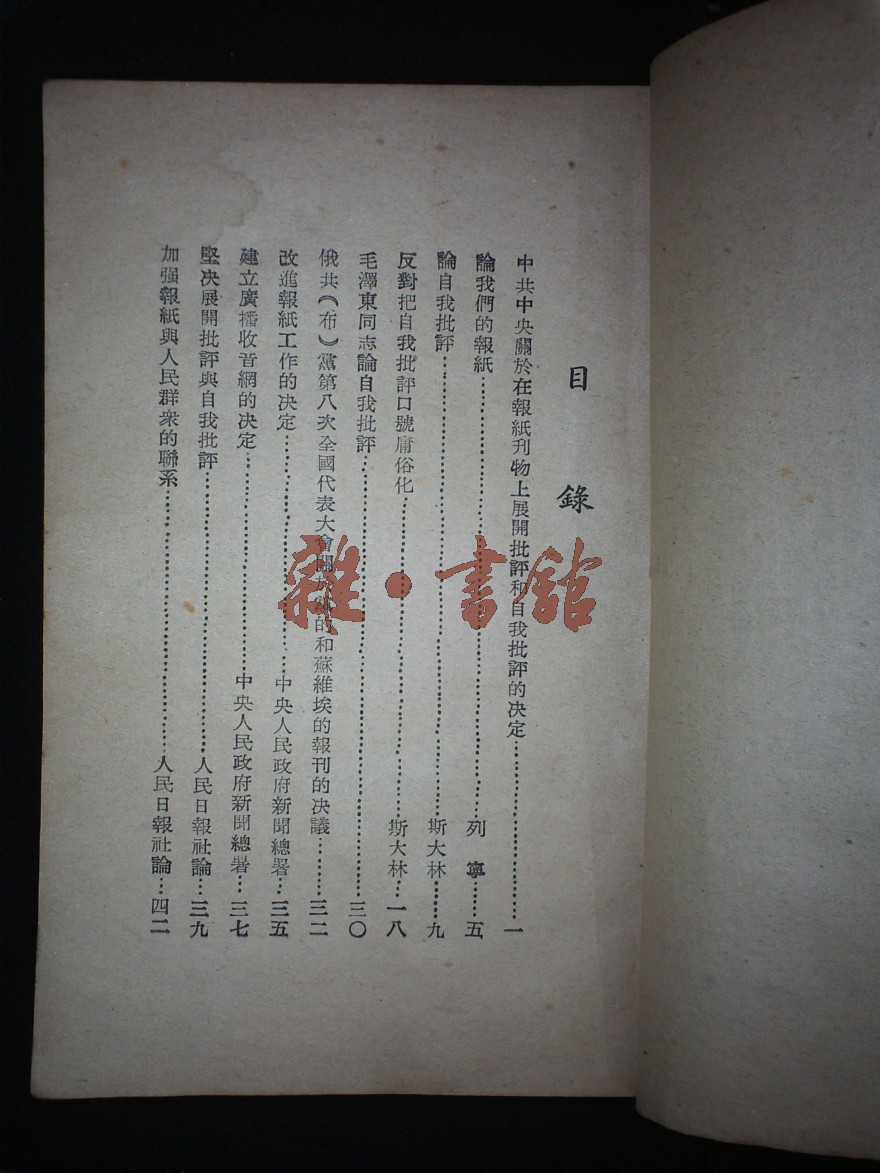 目錄
中共中央關於在報紙刊物上展開批評和自我批評的决定……一
論我們的報紙……列寧……五
論自我批評……斯大林……九
反對把自我批評口號庸俗化……斯大林……一八
毛澤東同志論自我批評……三〇
俄共（布）黨第八次全國代表大會關於黨的和蘇維埃的報刊的决議……三二
改進報紙工作的决定……中央人民政府新聞總署……三五
建立廣播收音網的决定……中央人民政府新聞總署……三七
堅决展開批評與自我批評……人民日報社論……三九
加强報紙與人民群衆的聯系……人民日報社論……四二
雜·書館